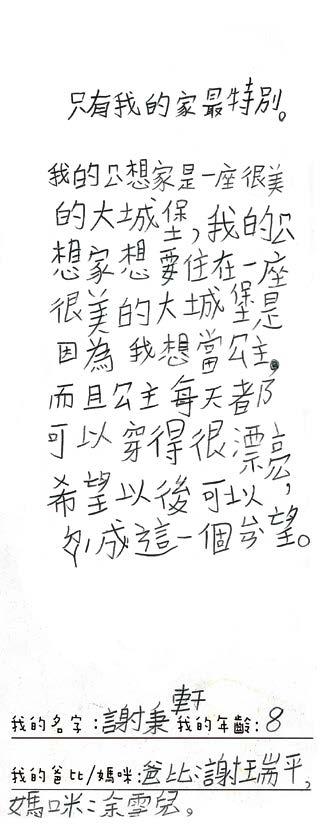 只有我的家最特別。
我的公想家是一座很美
的大城堡,我的公
想家想要住在一座
很美的大城堡是
因為我想當公主,
而且公主每天都
可以穿得很漂亮,
希望以後可以
成這一個望。
我的名字:謝秉軒 我的年齡:8
我的爸比/媽咪:爸比:謝瑞平,
媽咪:余雪兒,